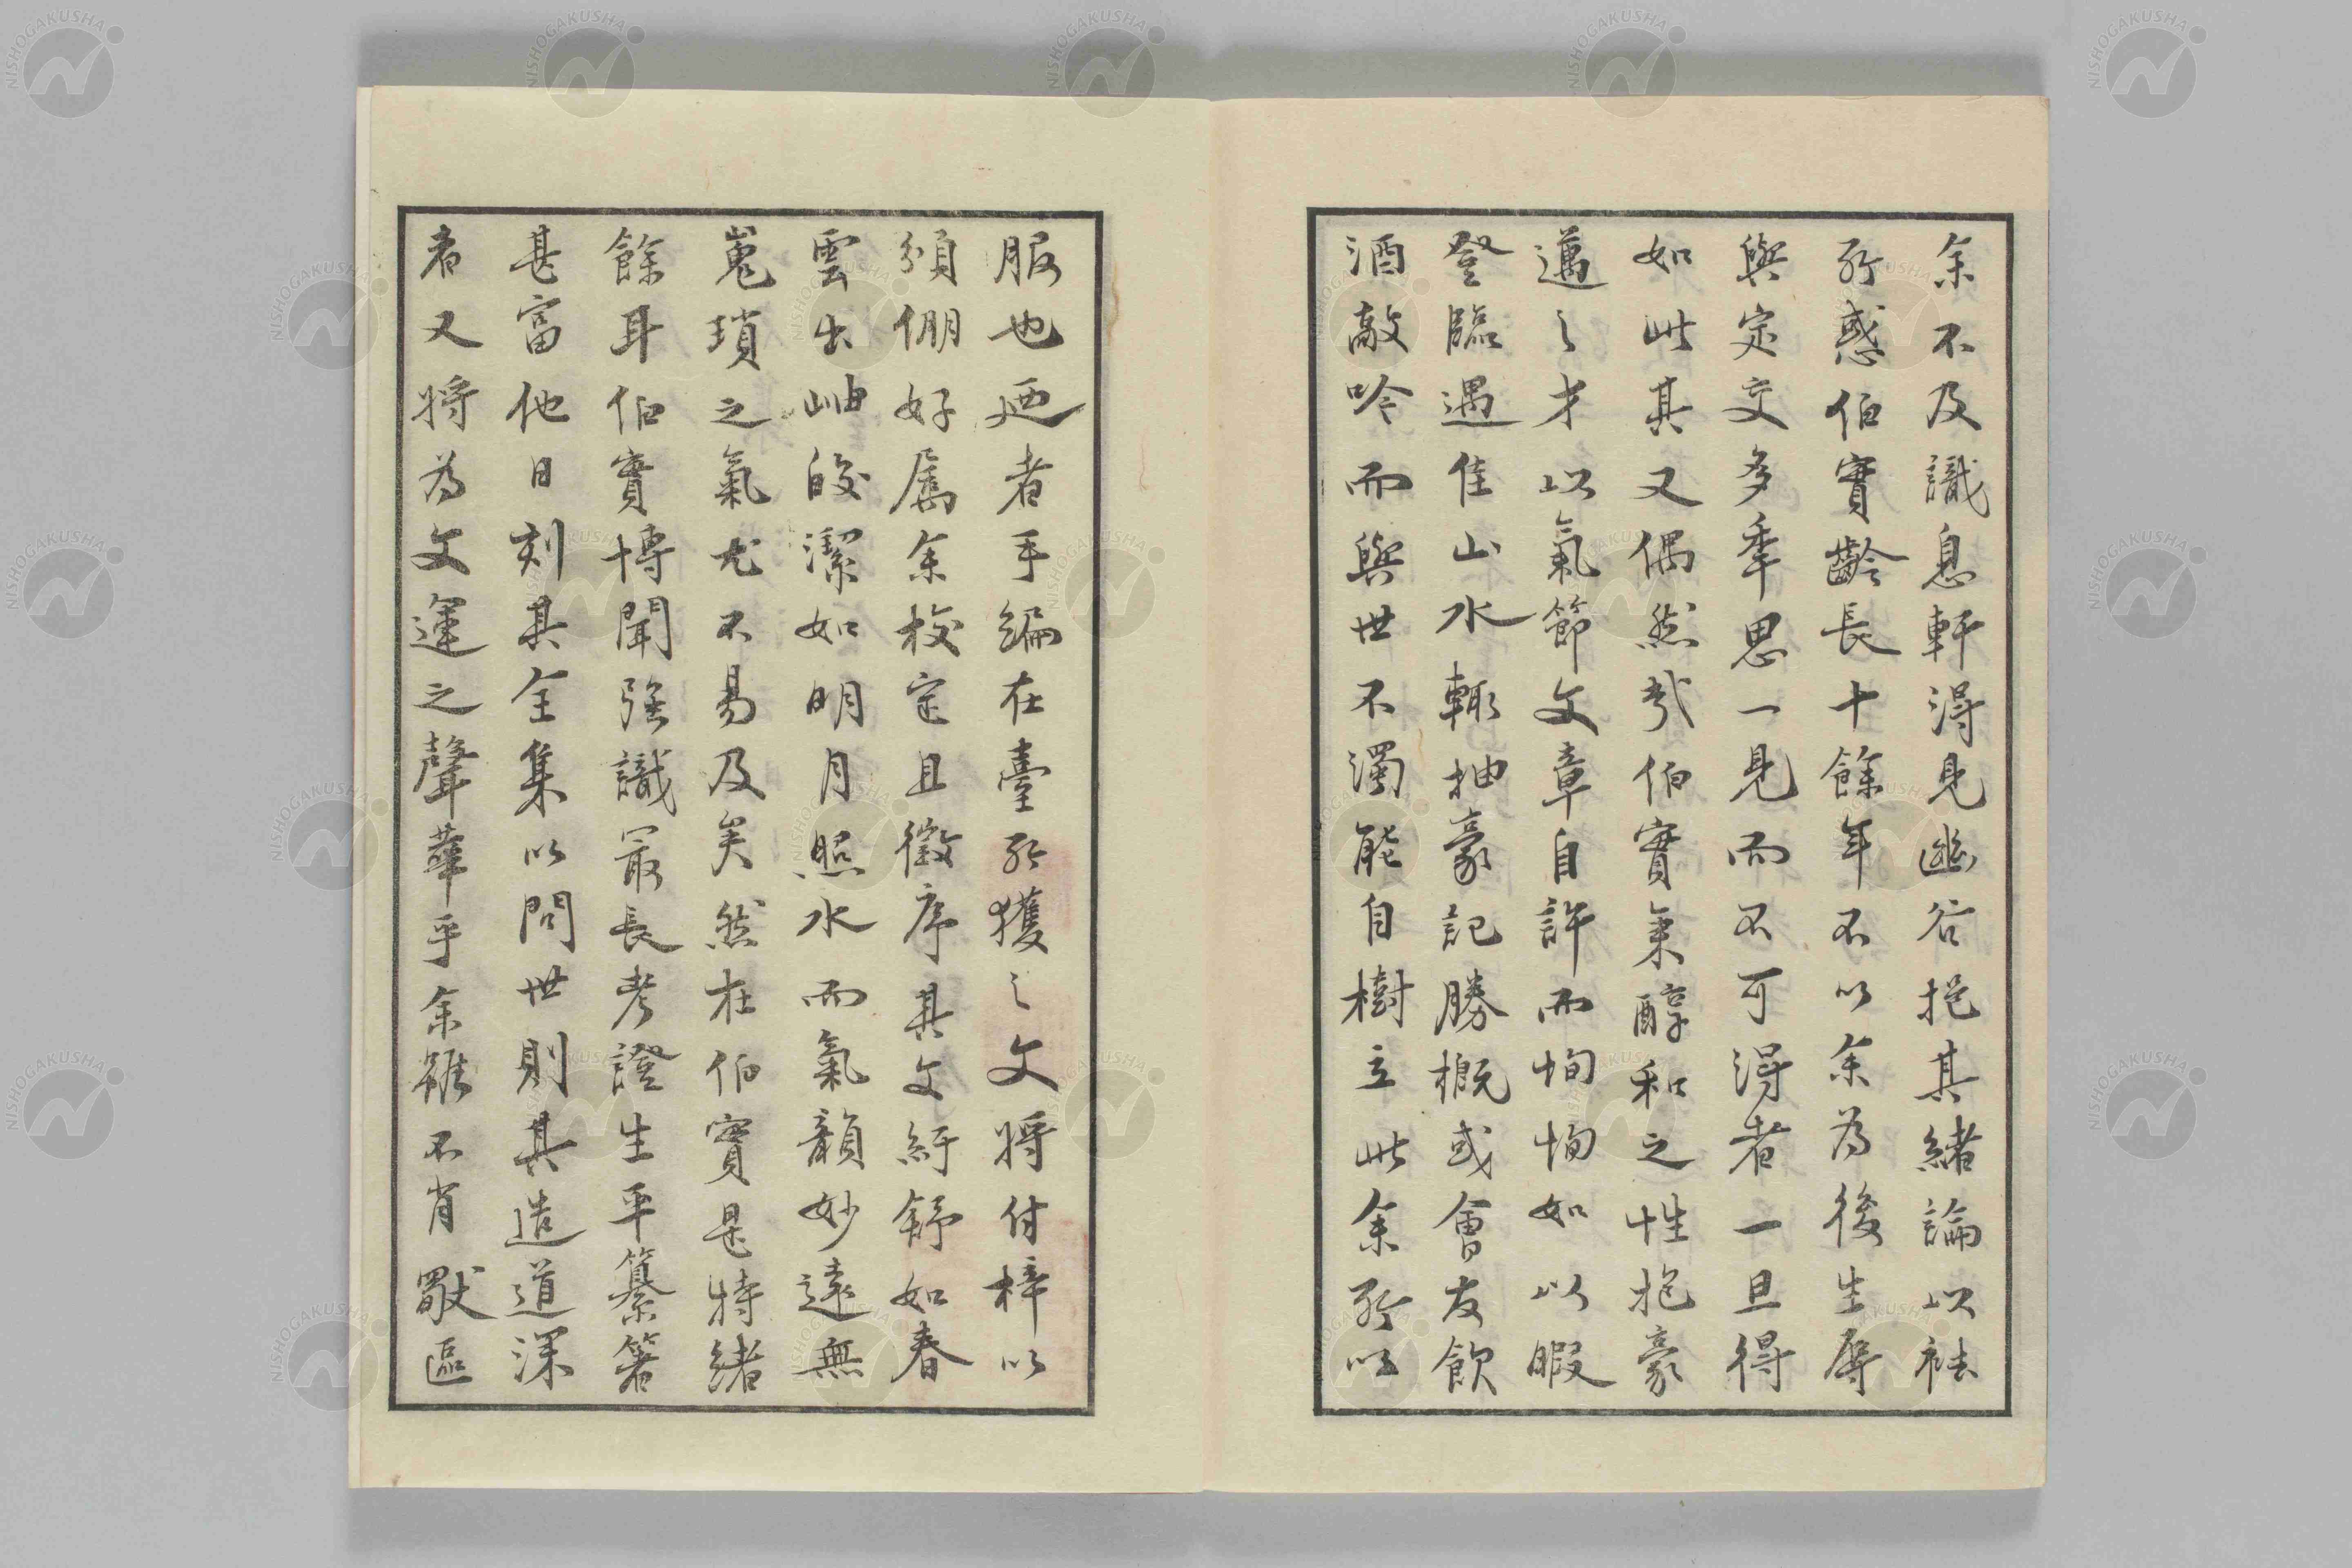 余不及識息軒得見幽谷挹其緒論以祛
所惑伯實齡長十餘年不以余為後生辱
與定交多年思一見而不可得者一旦得
如此其又偶然哉伯實秉醇和之性抱豪
邁之才以氣節文章自許而恂恂如以暇
登臨遇佳山水輒抽豪記勝概或會友飲
酒敲吟而與世不濁能自樹立此余所以
服也迺者手編在臺所獲之文將付梓以
頒倗好屬余校定且徵序其文紆舒如春
雲出岫皎潔如明月照水而氣韻妙遠無
嵬瑣之氣尤不易及矣然在伯實是特緒
餘耳伯實博聞强識最長考證生平纂著
甚富他日刻其全集以問世則其造道深
者又將為文運之聲華乎余雖不肖猒區
NISHOGAKUSHA